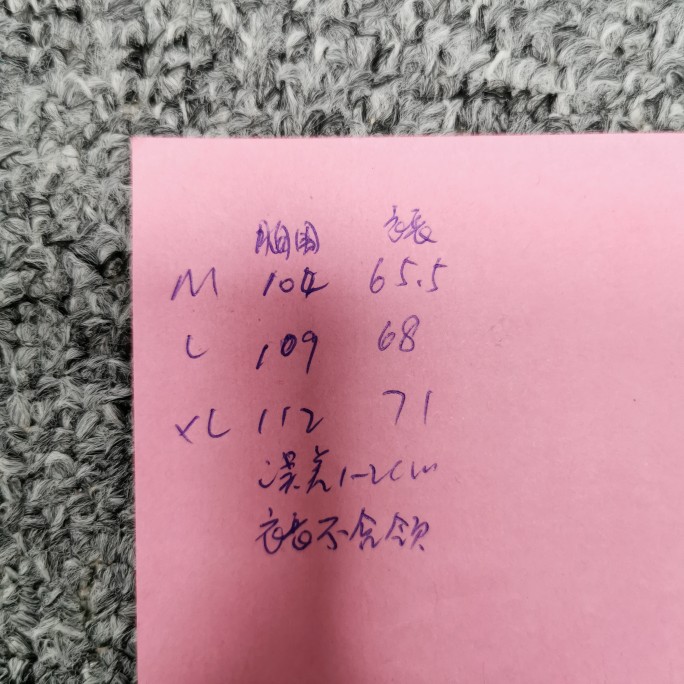 胸围 衣长
M 104 65.5
L 109 68
XL 112 71
误差1-2cm
衣长不含领